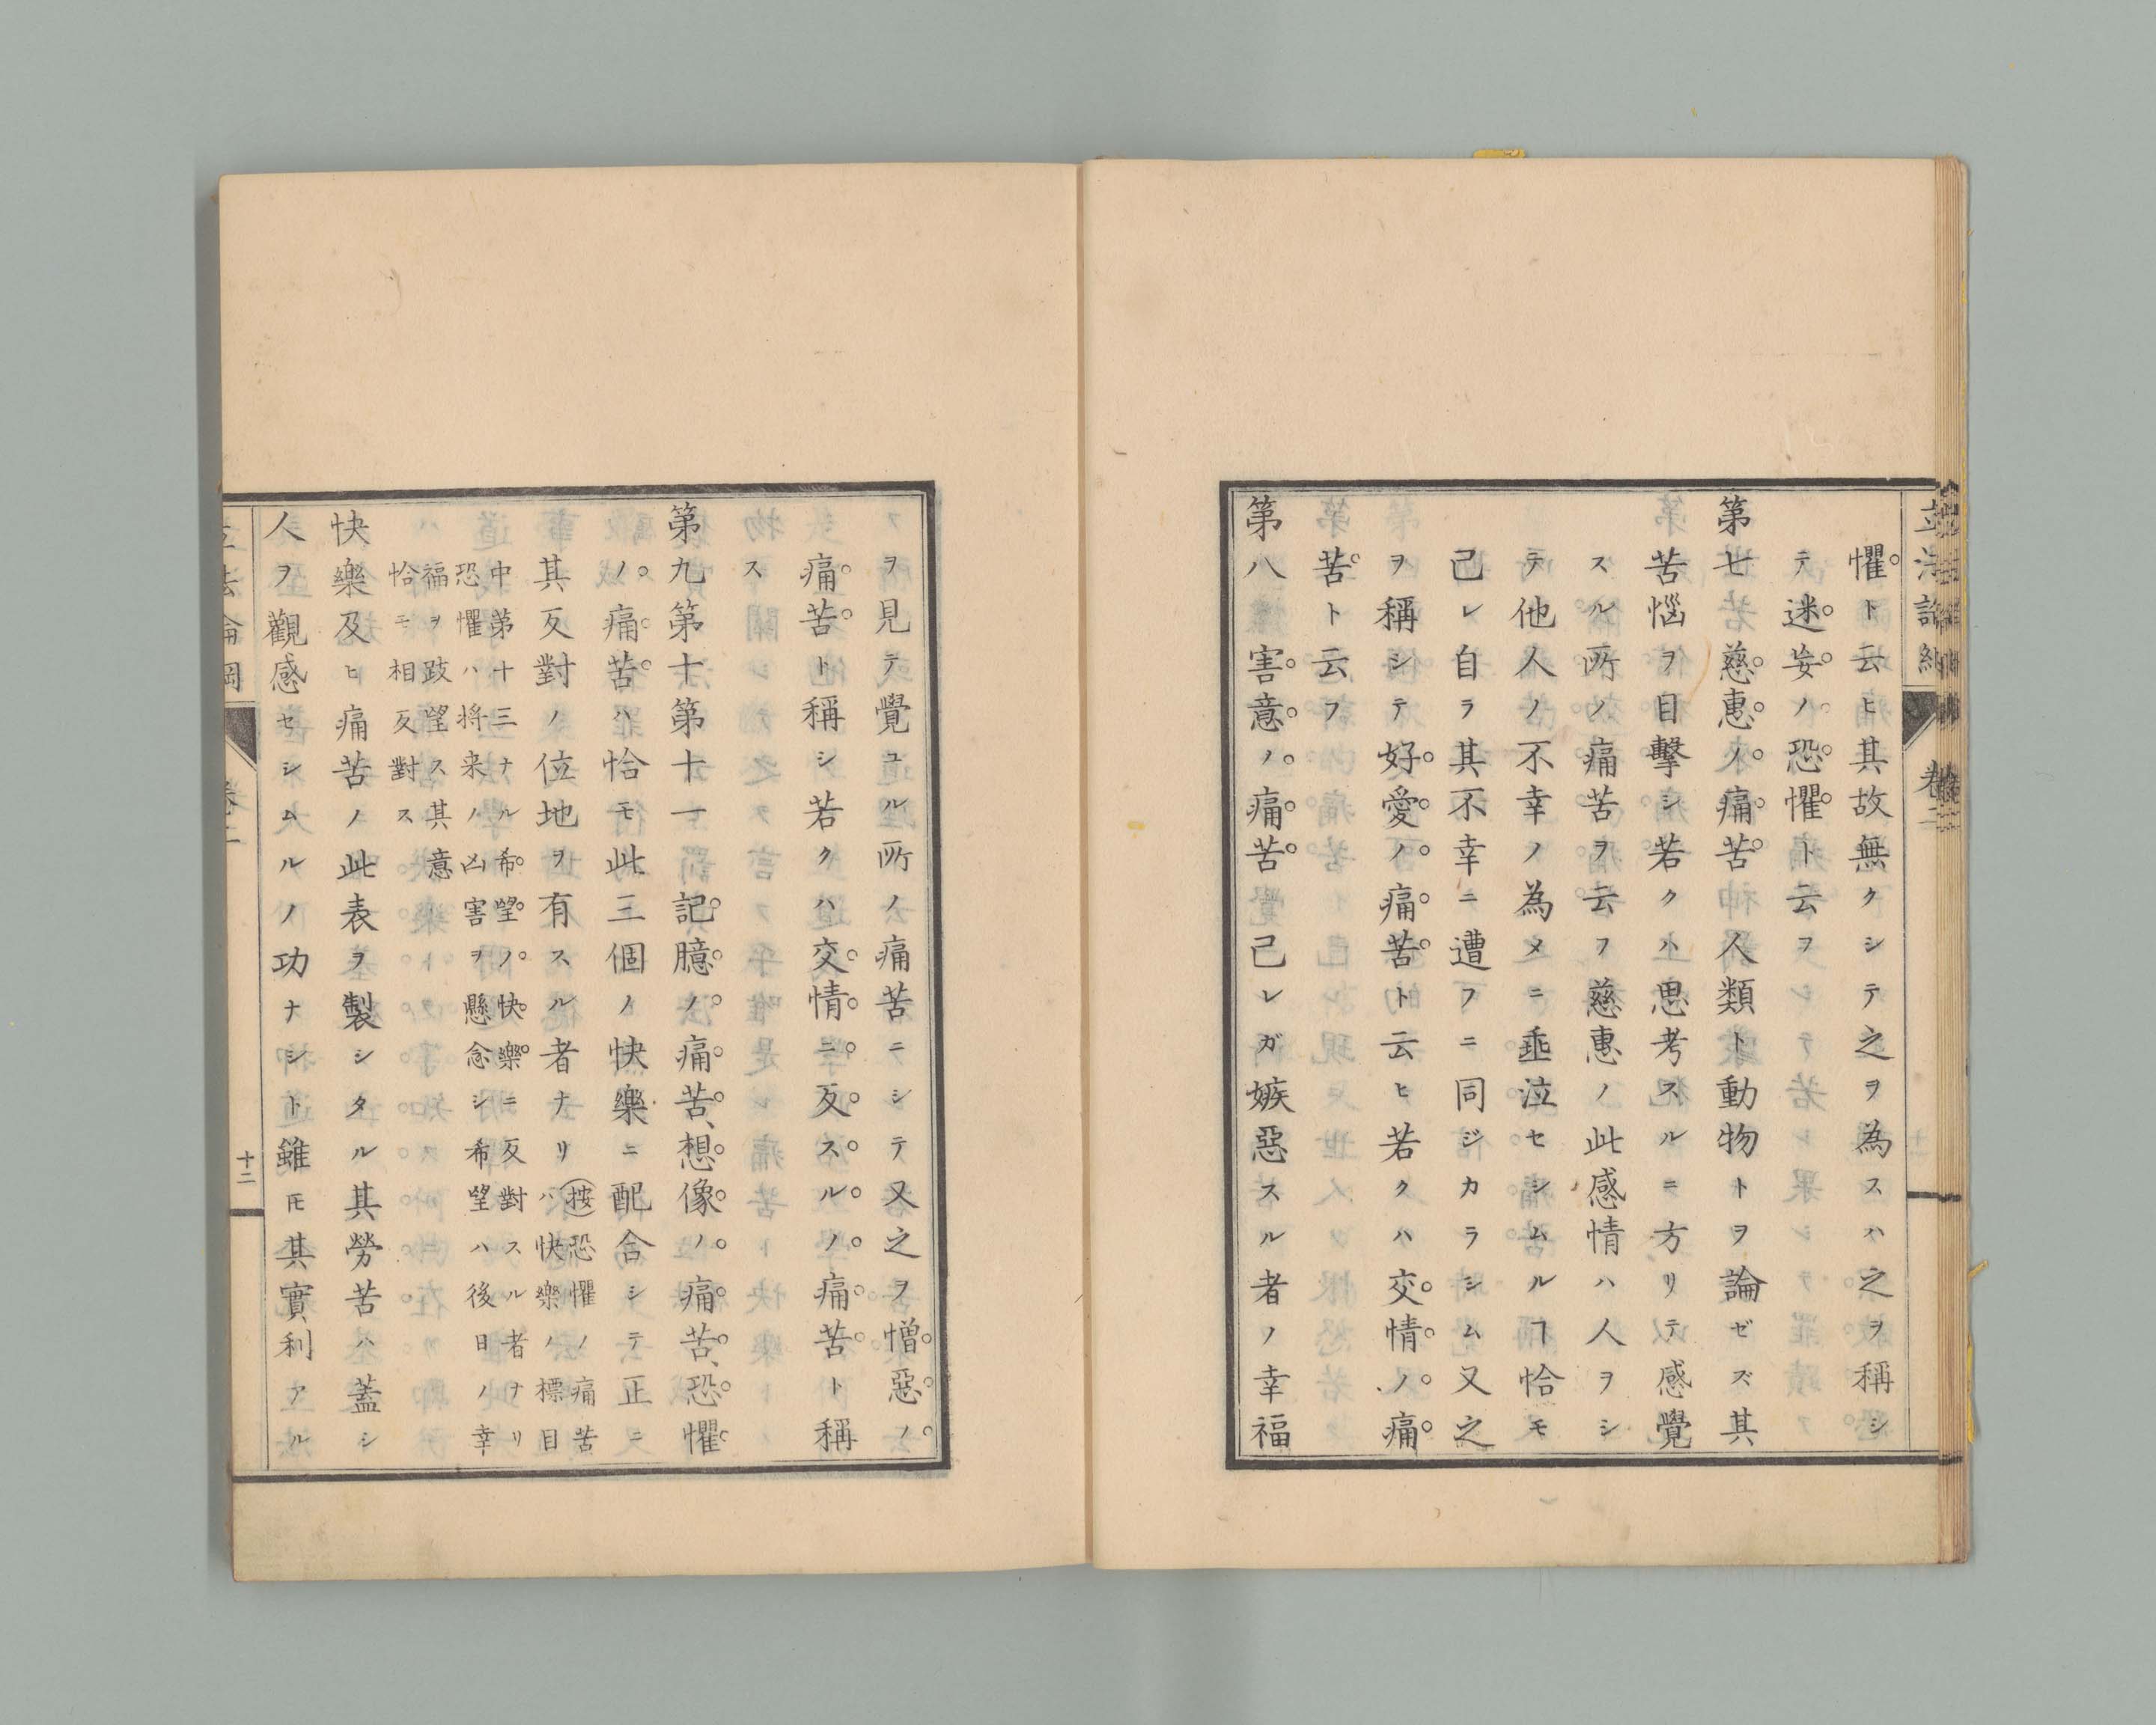 懼ト云ヒ其故無クシテ之ヲ為スハ之ヲ稱シ
テ迷妄ノ恐懼ト云ヲ
第七 慈惠ノ痛苦 人類ト動物トヲ論ゼズ其
苦惱ヲ目擊シ若クハ思考スルニ方リテ感覺
スル所ノ痛苦ヲ云フ慈惠ノ此感情ハ人ヲシ
テ他人ノ不幸ノ為メニ垂泣セシムルヿ恰モ
己レ自ラ其不幸ニ遭フニ同ジカラシム又之
ヲ稱シテ好愛ノ痛苦ト云ヒ若クハ交情ノ痛
苦ト云フ
第八 害意ノ痛苦 己レガ嫉惡スル者ノ幸福
ヲ見テ覺ユル所ノ痛苦ニシテ又之ヲ憎惡ノ
痛苦ト稱シ若クハ交情ニ反スルノ痛苦ト稱
ス
第九第十第十一 記臆ノ痛苦、想像ノ痛苦、恐懼
ノ痛苦ハ恰モ此三個ノ快樂ニ配合シテ正ニ
其反對ノ位地ヲ有スル者ナリ
按恐懼ノ痛苦
ハ快樂ノ標目
中第十三ナル希望ノ快樂ニ反對スル者ナリ
恐懼ハ將来ノ凶害ヲ懸念シ希望ハ後日ノ幸
福ヲ跂望ス其意
恰ニ相反對ス
快樂及ヒ痛苦ノ此表ヲ製シタル其勞苦ハ蓋シ
人ヲ觀感セシムルノ功ナシト雖𪜈其實利アル
立法論綱
卷二
十二